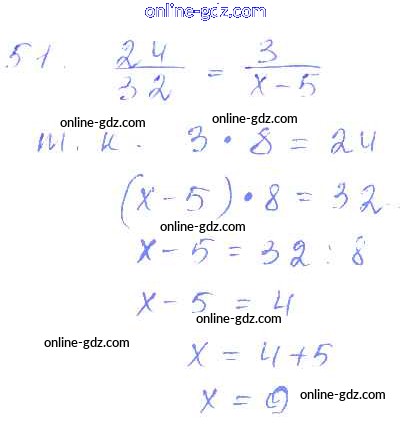 online-gdz.com
51. 24/32 = 3/(x-5)
online-gdz.com online-gdz.com
т.к. 3 · 8 = 24
(x-5) · 8 = 32
online-gdz.com
x-5 = 32 : 8
x-5 = 4
online-gdz.com
online-gdz.com
x = 4+5
x = 9 online-gdz.com